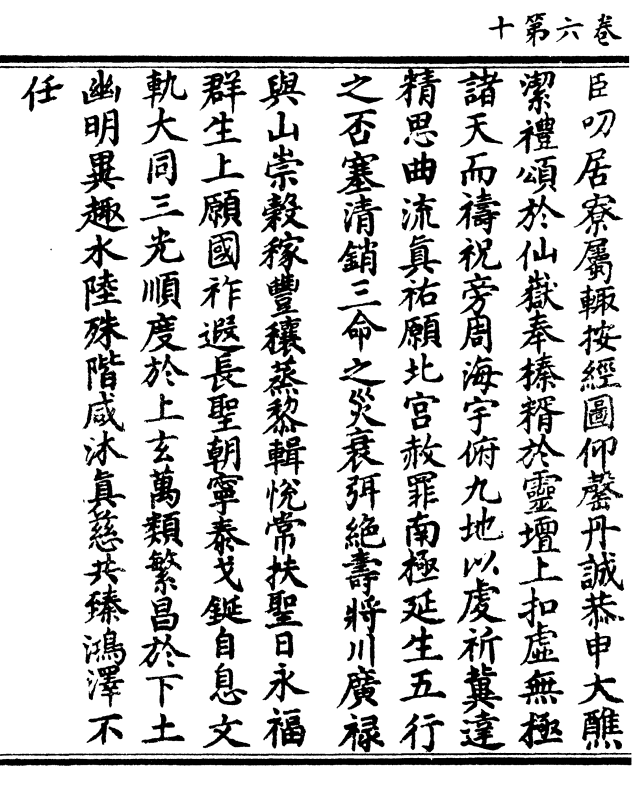 卷六第十
臣叨居寮屬輙按經圖仰罄丹誠恭申大醮
潔禮頌於仙嶽奉榛糈於靈壇上扣虛無極
諸天而禱祝旁周海宇俯九地以虔祈冀達
精思曲流真祐願北宮赦罪南極延生五行
之否塞清銷三命之災衰弭絕壽將川廣祿
與山崇穀稼豐穰蒸黎輯悅常扶聖日永福
群生上願國祚遐長聖朝寧泰戈鋋自息文
軌大同三光順度於上玄萬類繁昌於下土
幽明異趣水陸殊階咸沐真慈共臻鴻澤不
任